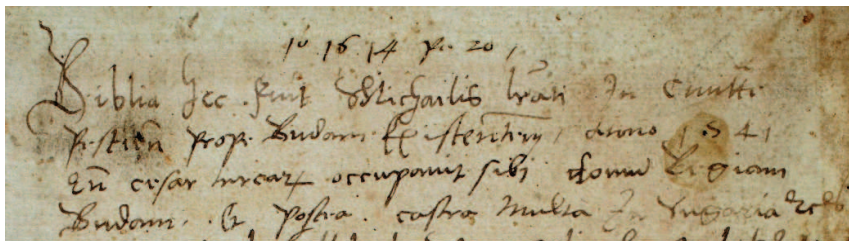 10 16 14 p. 20,
Biblia hec fuit Michaelis lrati In Ciuitte
pestien prope Budam Existentem, Anno 1541
Qn cesar turcar occupauit sibi domu Regiam
Budam. Et postea castra multa In Vngaria